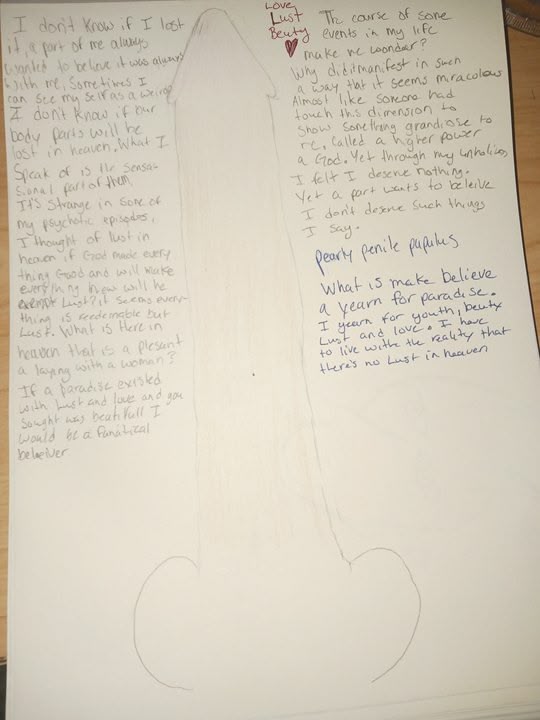 I don't know if I lost
it, a part of me always
wanted to believe it was always
with me, Sometimes I
can see my self as a weirdo
I don't know if our
body parts will be
lost in heaven. What I
Speak of is the sensa-
sional part of them
It's strange in some of
my psychotic episodes,
I thought of lust in
heaven if God made every
thing Good and will make
everything new will he
exempt Lust? it seems every-
thing is redeemable but
Lust. What is there in
heaven that is a plesant
a laying with a woman?
If a paradise existed
with Lust and love and you
sought was beatifull I
would be a fanatical
beleiver
Love
Lust
Beuty
The course of some
events in my life
make me wonder?
Why did it manifest in such
a way that it seems miraculous
Almost like someone had
touch this dimension to
show something grandiose to
re. Called a higher power
a God. Yet through my unholiness
I felt I deserve nothing.
Yet a part wants to beleive
I don't deserve such things
I say.
pearly penile papulus
What is make believe
a yearn for paradise.
I yearn for youth, beuty
Lust and love. I have
to live withe the reality that
there's no Lust in heaven